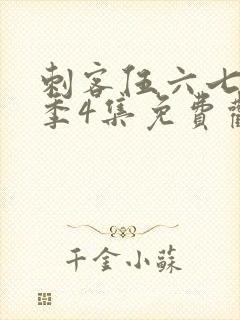 刺客伍六七
季4集免費
千金小蘇